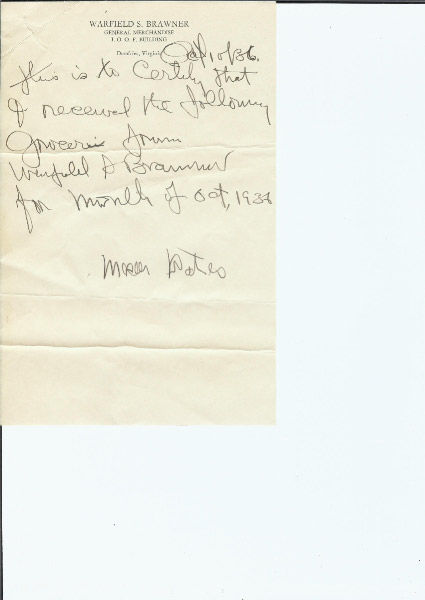 WARFIELD S. BRAWNER
GENERAL MERCHANDISE
I. O. O. F. BUILDING
Dumfries, Virginia, Oct 10/36.
This is to Certify that
I received the following
Groceries from
Warfield S Brawner
for Month of Oct, 1936
Bates